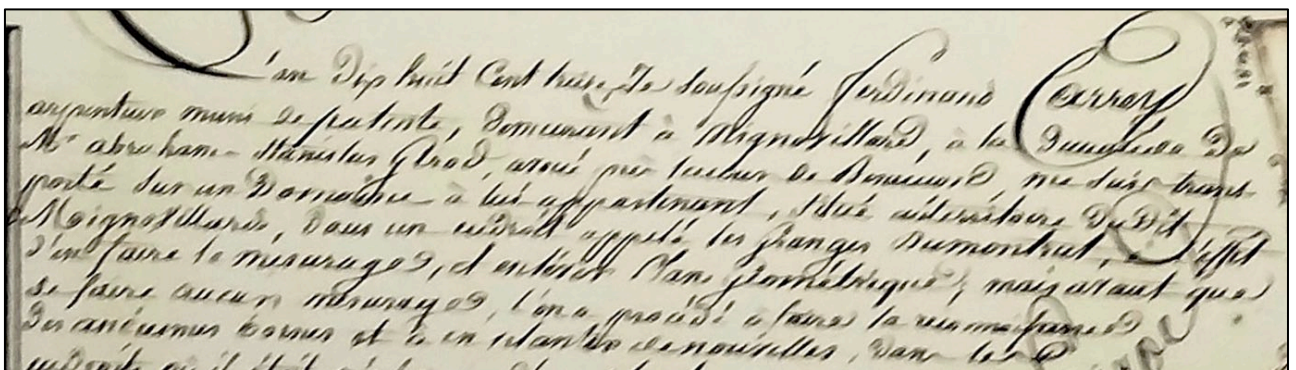 L'an Dix huit Cent treize, Je soussigné ferdinand Carrey
arpenteur muni de patente, Demeurant à Mignovillard, à la Demande De
Mr abraham Stanislas Girod, avoué près De me suis trans
porté Sur un Domaine à lui appartenant, Situé au territoire DuDit
Maignovillard, Dans un endroit appelé les Granges Dumontrat, à l'effet
d'en faire le mesurage, et en lever Plan géométrique; mais avant que
de faire aucun mesurage, l'on a procédé à faire la reconnaissance
Des anciennes bornes et à en planter de nouvelles, Dans les
endroits où il